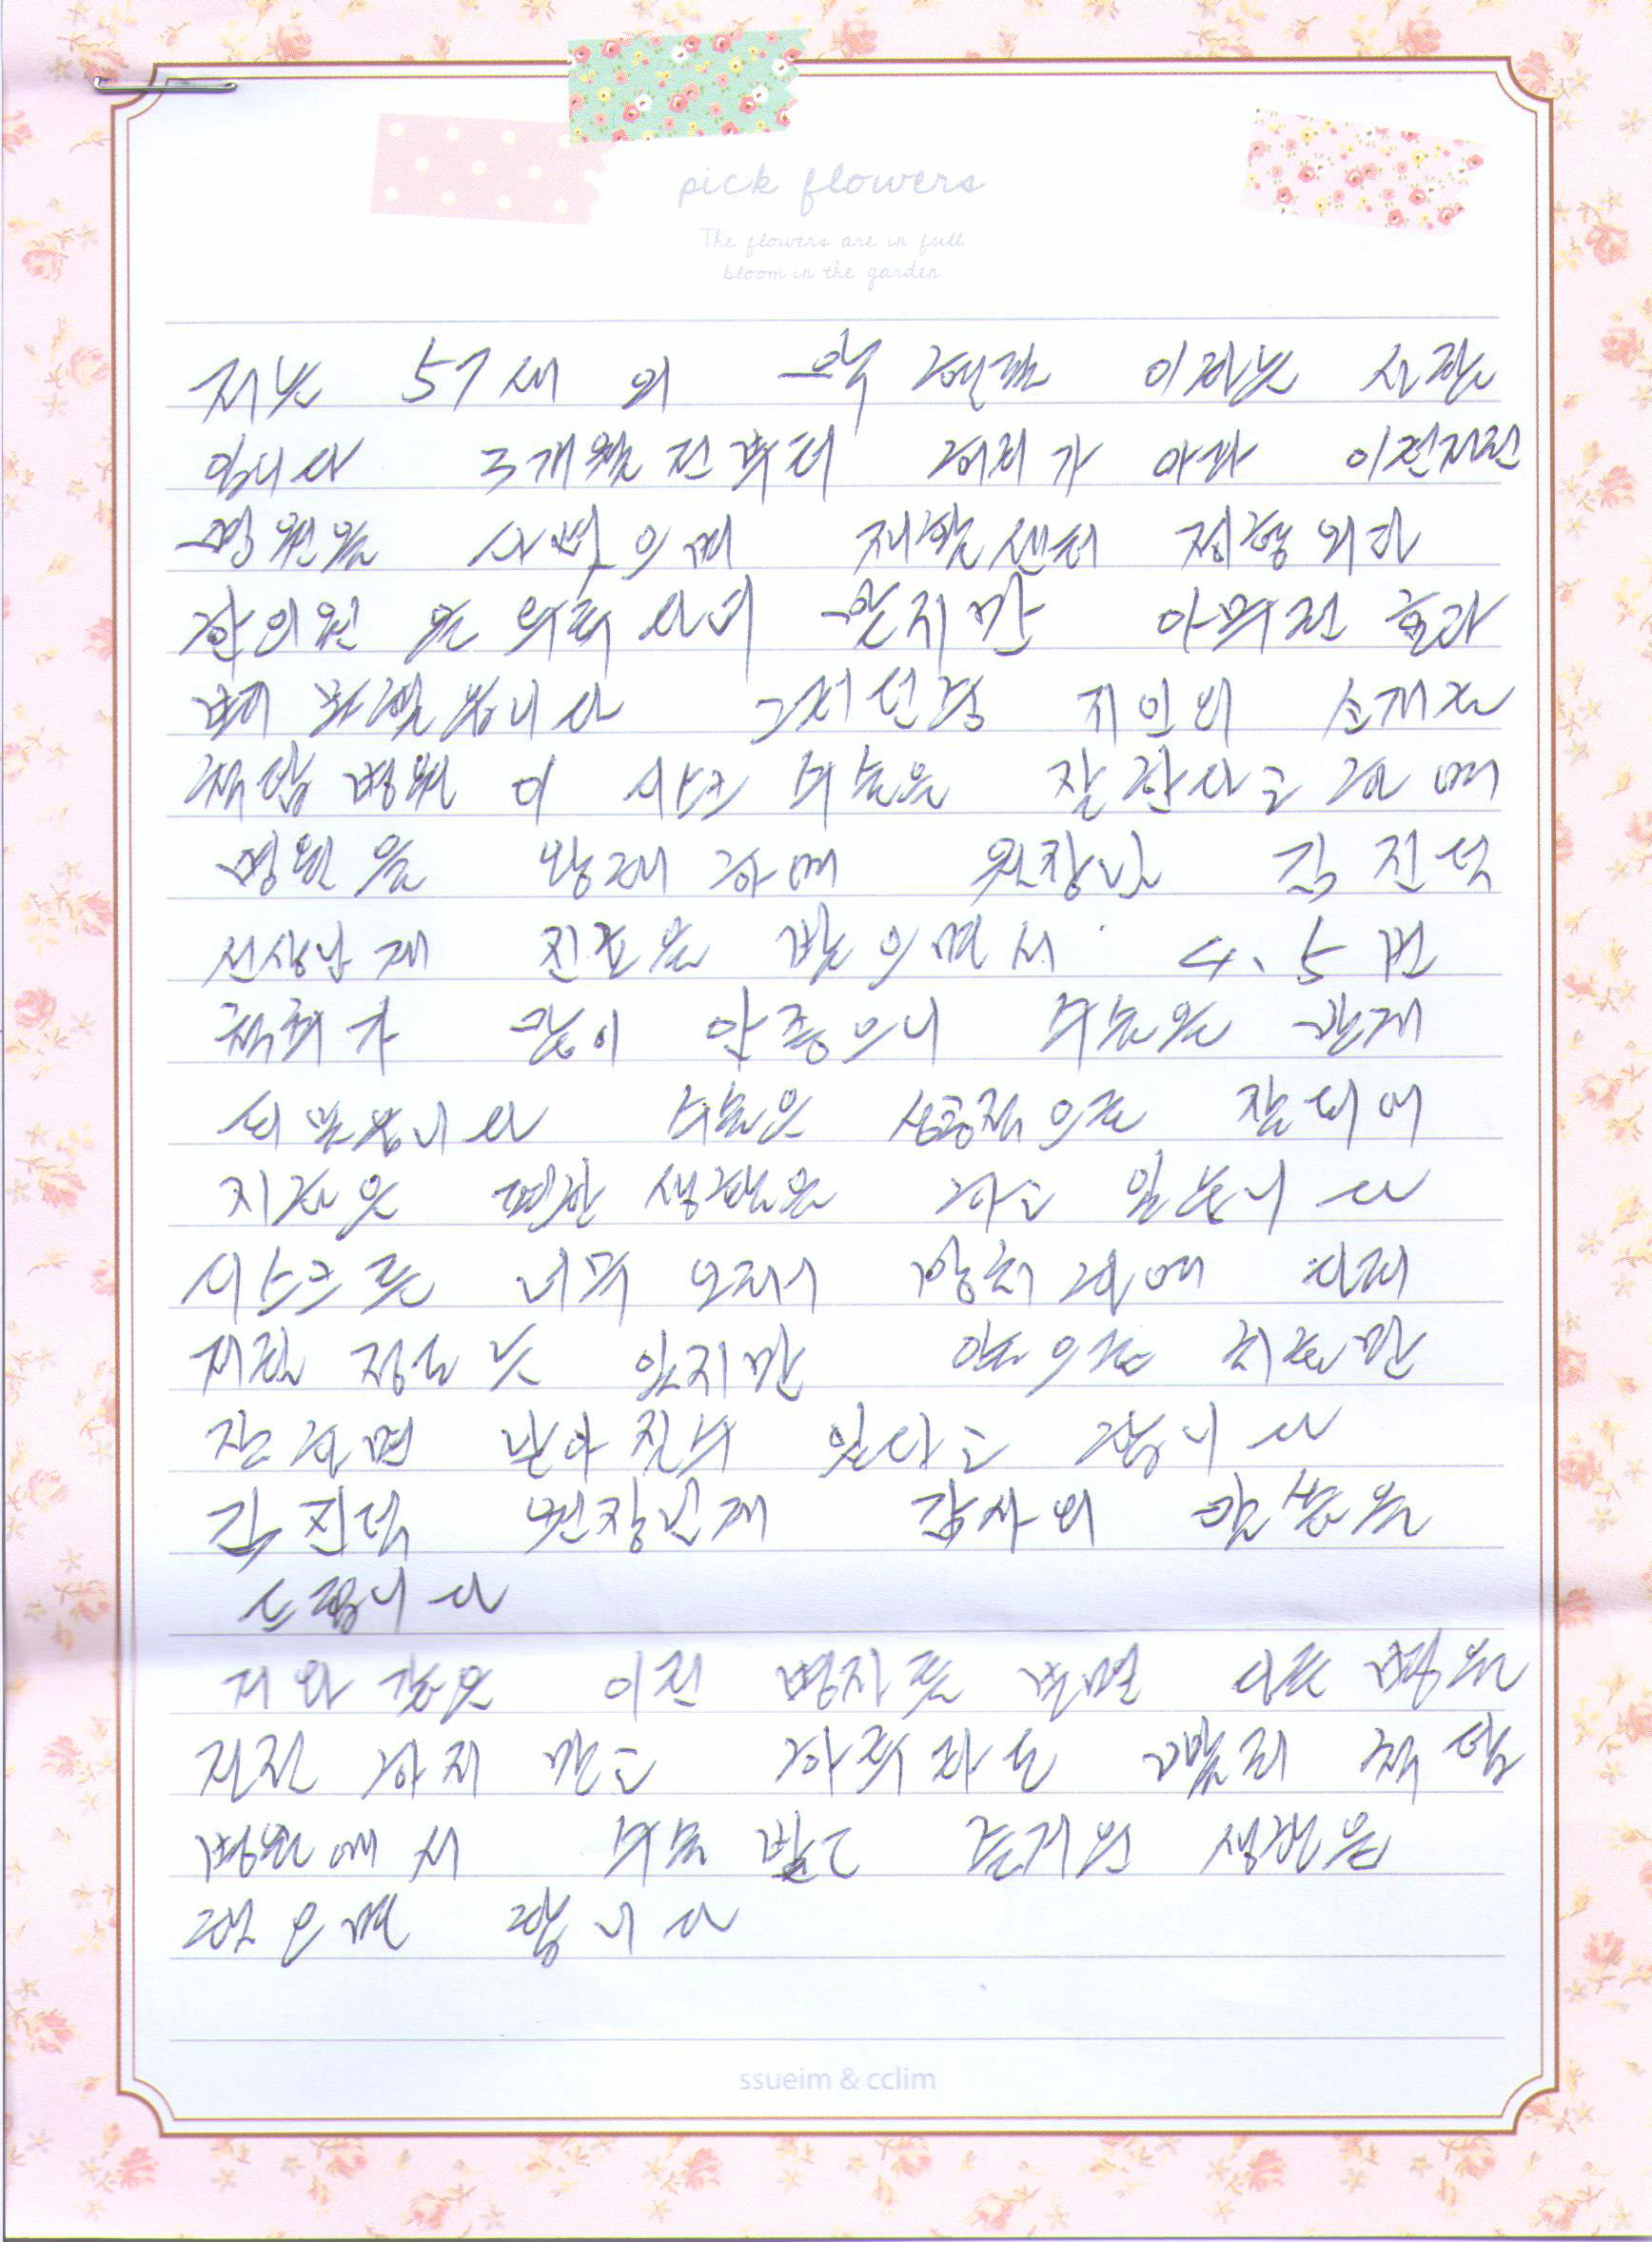 pick flowers
The flowers are in full
bloom in the garden
저는 57세의 이라는 사람
입니다 3개월 전부터 허리가 아파 이런저런
병원을 재활센터 정형외과
한의원을 아무런 효과
그러던중 지인의 소개로
척담병원이 디스크 수술을 잘한다고 하여
병원을 왕래하며 원장님 김진석
선생님께 진료을 받으면서 4.5번
척추가 많이 안좋으니 수술을 받게
되었습니다 수술은 성공적으로 잘되어
지금은 편한 생활을 하고 있습니다
디스크를 너무 오래 방치하여 다리
저린 정도는 있지만 앞으로 치료만
잘하면 나아질수 있다고 합니다
김진석 원장님께 감사의 말씀을
드립니다
저와 같은 이런 병자를 보면 다른 병원
전전하지 말고 하루라도 빨리 척담
병원에서 수술 받고 즐거운 생활을
했으면 합니다
ssueim & cclim